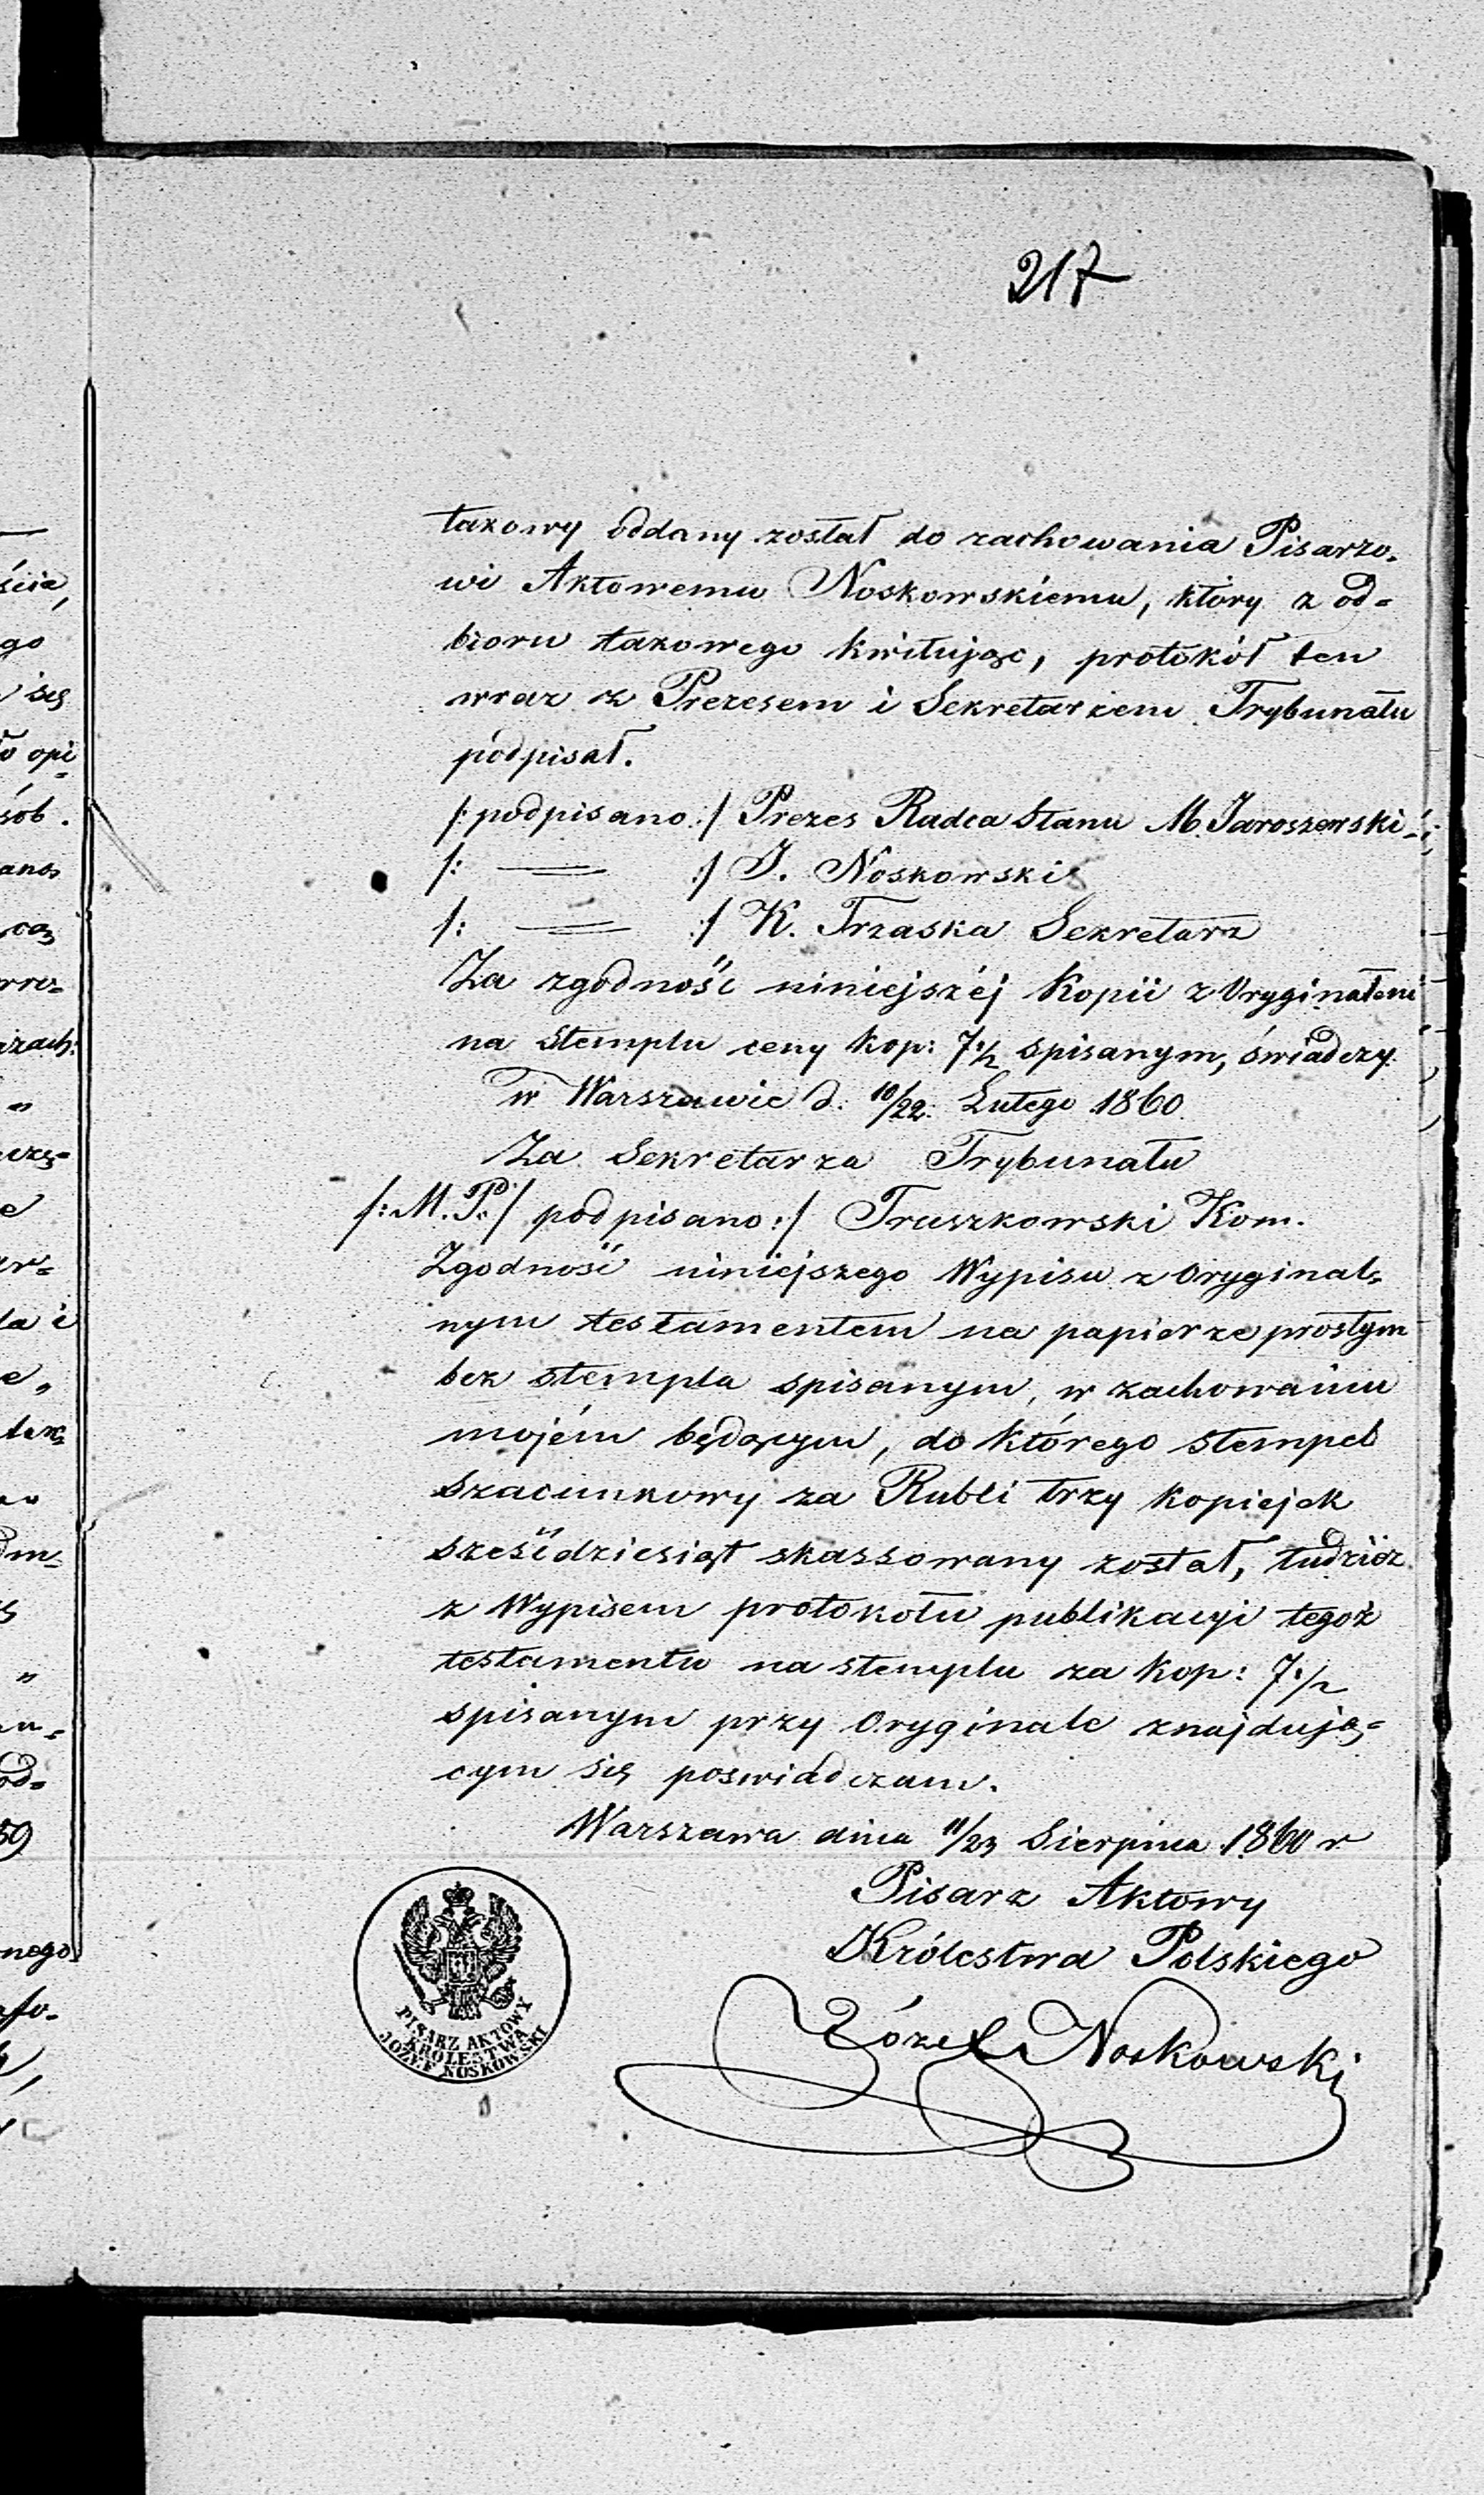 217
takowy oddany został do zachowania Pisarzo-
wi Aktowemu Noskowskiemu, który z od=
bioru takowego kwitując, protokół ten
wraz z Prezesem i Sekretarzem Trybunału
podpisał.
/: podpisano :/ Prezes Radca Stanu M. Jaroszewski
/: —— :/ J. Noskowski
/: —— :/ K. Trzaska Sekretarz
Za zgodność niniejszéj Kopii z Oryginałem
na stemplu ceny kop: 7½ spisanym, świadczy
w Warszawie d: 10/22. Lutego 1860.
Za Sekretarza Trybunału
/: M. P. / podpisano :/ Truszkowski Kom.
Zgodność niniejszego Wypisu z Oryginal=
nym testamentem na papierze prostym
bez stempla spisanym, w zachowaniu
mojém będącym, do którego stempel
szacunkowy za Rubli trzy kopiejek
sześćdziesiąt skassowany został, tudzież
z Wypisem protokołu publikacyi tegoż
testamentu na stemplu za kop: 7½
spisanym przy Oryginale znajdują=
cym się poswiadczam.
Warszawa dnia 11/23 Sierpnia 1860 r
Pisarz Aktowy
Królestwa Polskiego
Józef Noskowski
PISARZ AKTOWY
KRÓLESTWA
JÓZEF NOSKOWSKI
ścia,
go
się
opi
=
sób.
Ła i
59
nego